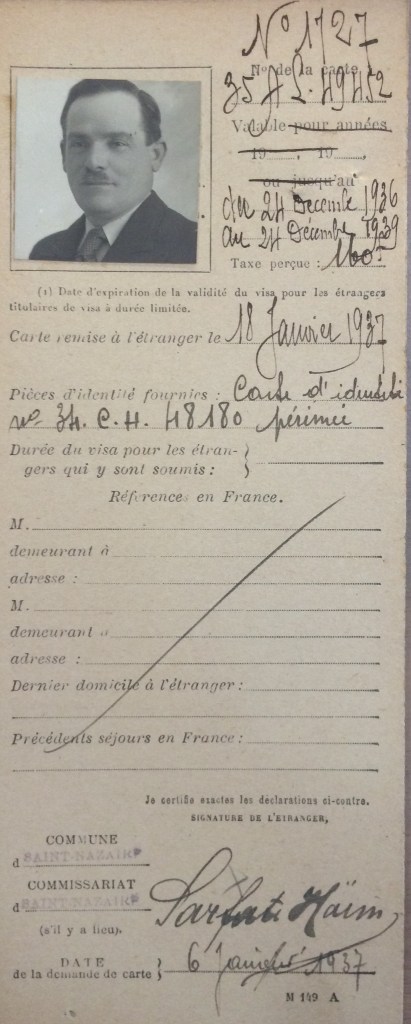 N° 1727
N° de la carte
35 AL. 49452
Valable pour années
19 , 19 ,
ou jusqu'au
du 24 Décembre 1936
au 24 Décembre 1939
Taxe perçue : 160F
(1) Date d'expiration de la validité du visa pour les étrangers
titulaires de visa à durée limitée.
Carte remise à l'étranger le 18 Janvier 1937
Pièces d'identité fournies : Carte d'identité
n° 34. C.H. 48180 périmée
Durée du visa pour les étran-
gers qui y sont soumis :
Références en France.
M.
demeurant à
adresse :
M.
demeurant à
adresse :
Dernier domicile à l'étranger :
Précédents séjours en France :
Je certifie exactes les déclarations ci-contre.
SIGNATURE DE L'ÉTRANGER,
COMMUNE
d SAINT-NAZAIRE
COMMISSARIAT
d SAINT-NAZAIRE
(s'il y a lieu).
Sarfati Haïm
DATE
de la demande de carte } 6 Janvier 1937
M 149 A